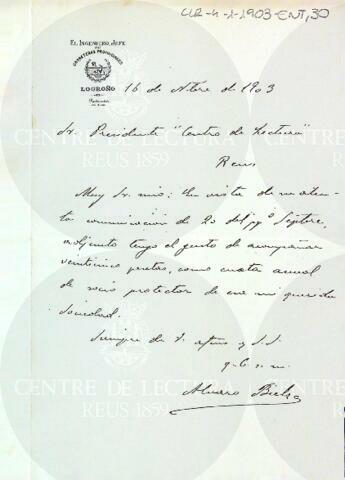 CLR-4-1-1903-ENT,30
EL INGENIERO JEFE
CARRETERAS PROVINCIALES
LOGROÑO
Particular
16 de de 1903
Sr. Presidente "Centro de Lectura"
Reus
Muy Sr. mio: En vista de su aten-
ta comunicacion de 20 del pp.º Septbre,
adjunto tengo el gusto de acompañar
veinticinco pesetas, como cuota anual
de socio protector de esa mi querida
Sociedad.
Siempre de V. afmo y S.S.
q.b.s.m.
Alvaro Bielza
CENTRE DE LECTURA
REUS 1859
CENTRE DE LECTURA
REUS 1859